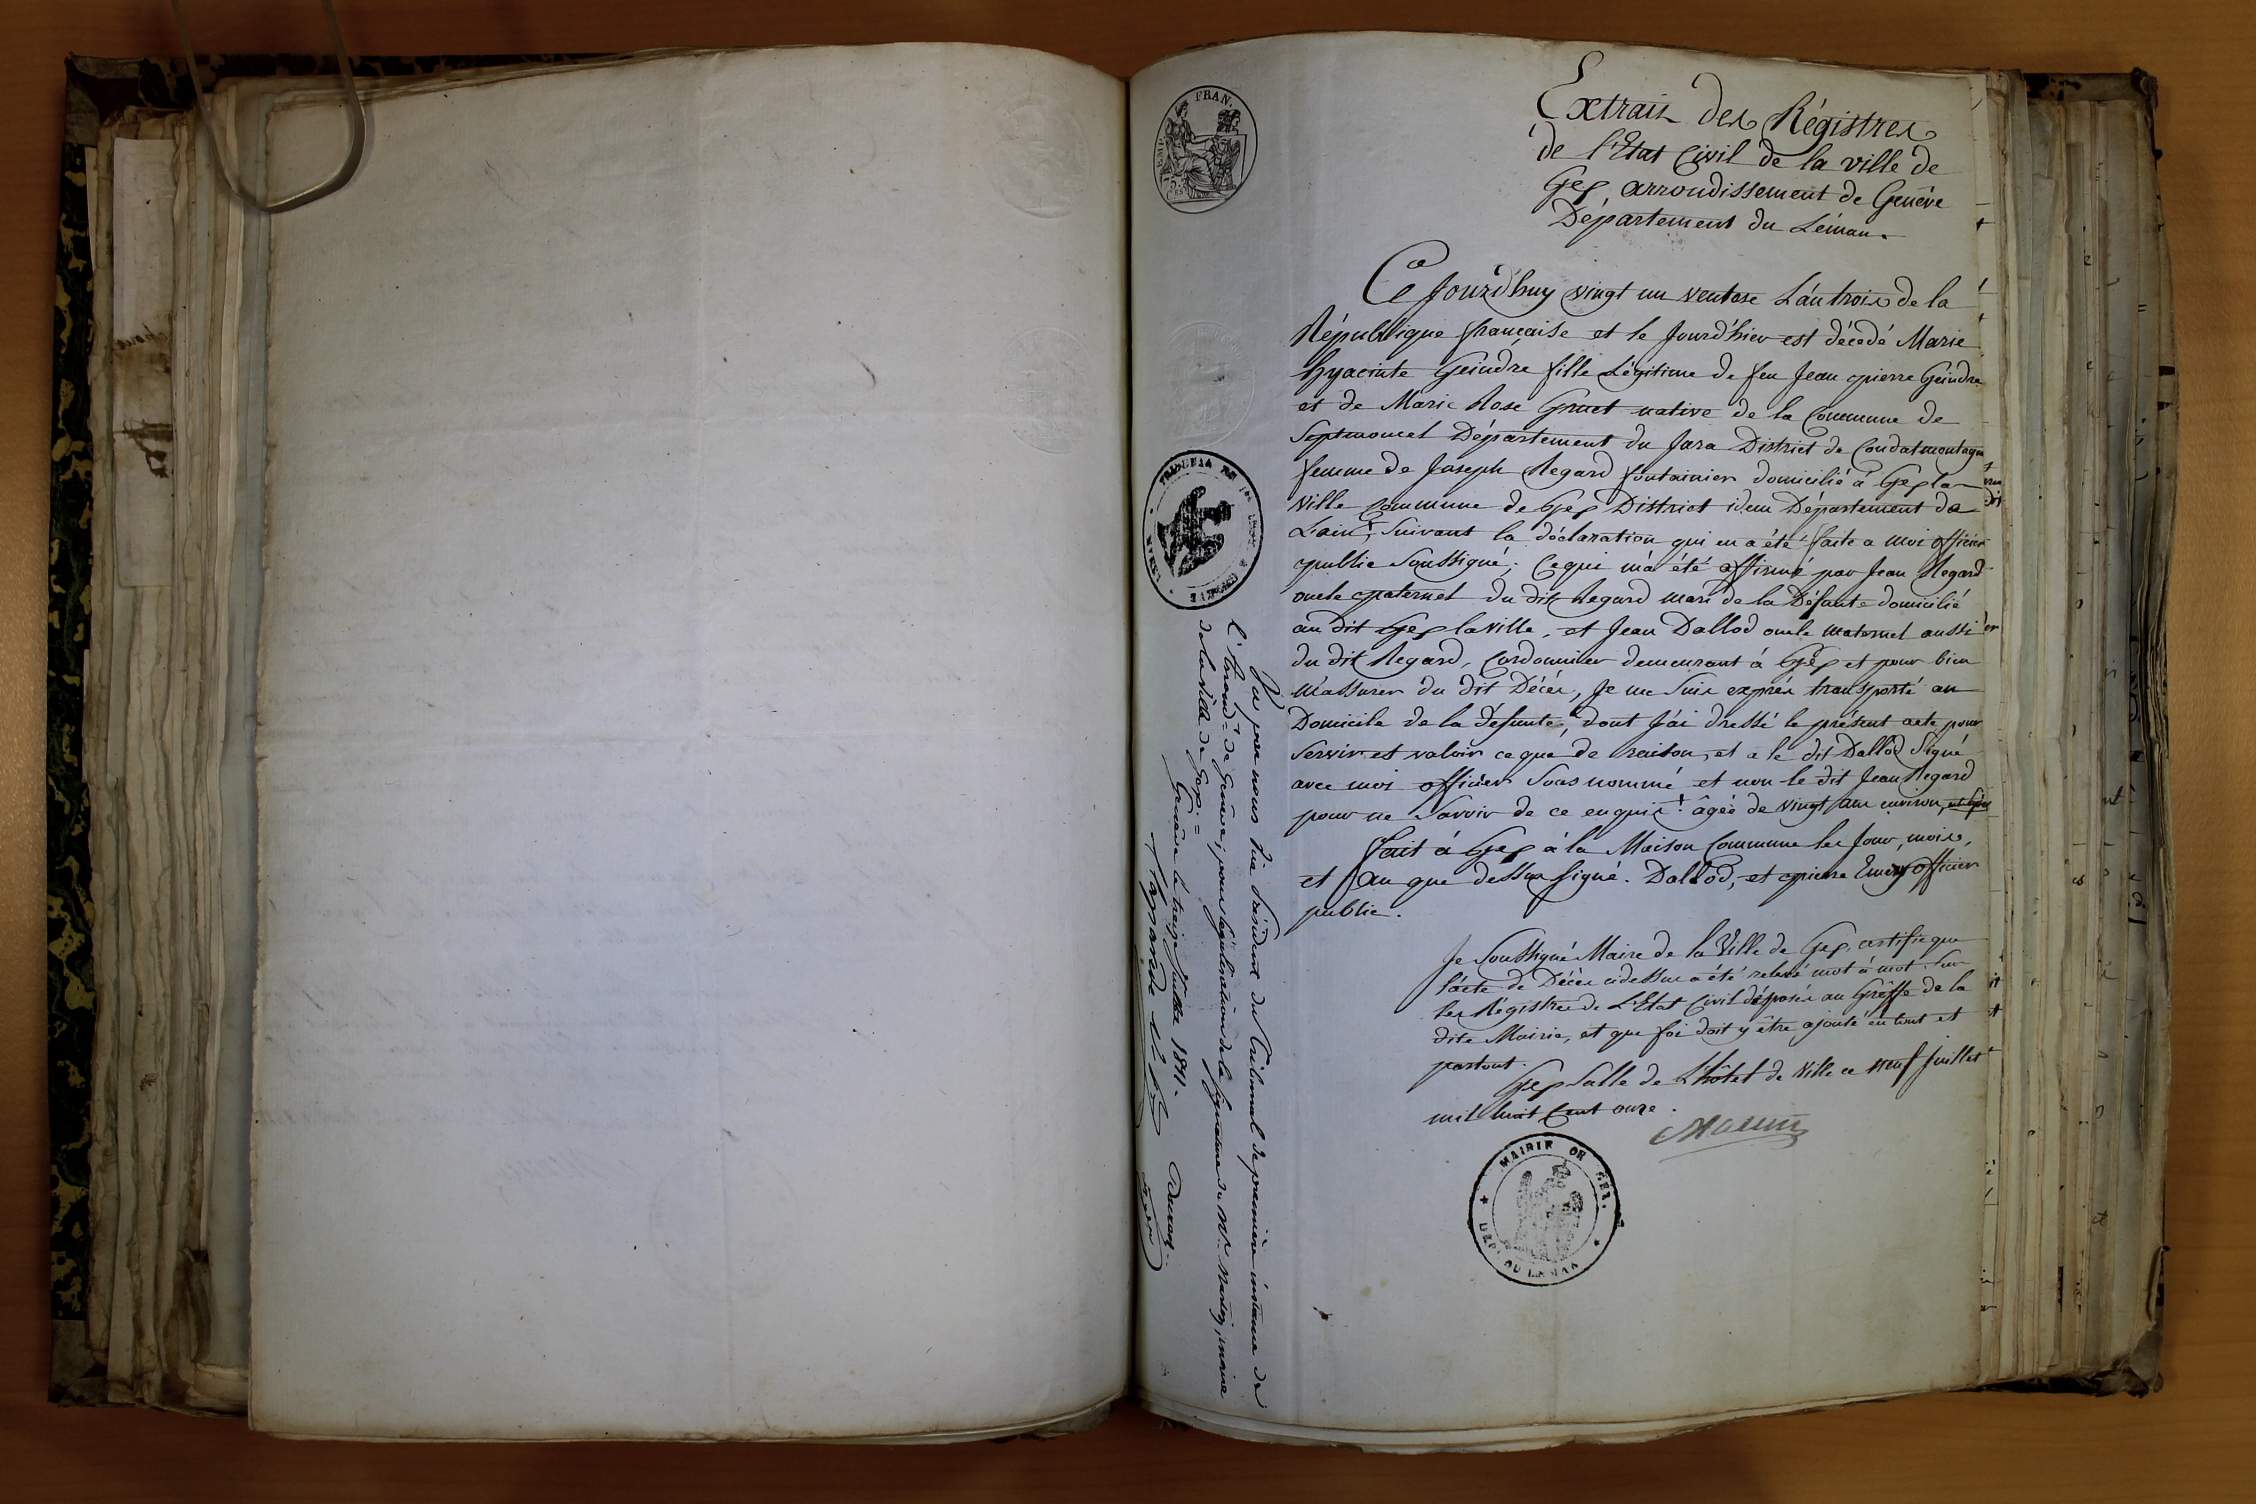 Extrait des Régistres
de l'Etat Civil de la ville de
Gex arrondissement de Genêve
Département du Léman.
Ce Jourd'huy vingt un ventose L'an trois de la
République française et le Jourd'hier est décédé Marie
hyacinte Geindre fille Légitime de feu Jean pierre Geindre
et de Marie Rose Gruet native de la Commune de
Septmoncel Département du Jura District de Condatmontagne
femme de Joseph Regard fontainier domicilié à Gex la
Ville Commune de Gex District idem Département de
L'ain, Suivant la déclaration qui en a été faite a moi officier
public Soussigné; Ce qui m'a été affirmé par Jean Regard
oncle paternel du dit Regard mari de la Défunte domicilié
au dit Gex la Ville, et Jean Dallod oncle maternel aussi
du dit Regard, Cordonnier demeurant à Gex et pour bien
m'assurer du dit Décès, Je me Suis exprès transporté au
Domicile de la défunte, dont J'ai dressé le présent acte pour
Servir et valoir ce que de raison, et a le dit Dallod Signé
avec moi officier Sous nommé et non le dit Jean Regard
pour ne Savoir de ce enquis + âgée de vingt ans environ,
fait à Gex à la Maison Commune les Jour, mois,
et an que dessus signé. Dallod, et pierre Emery officier
public.
Je Soussigné Maire de la Ville de Gex, certifie que
l'acte de Décès cidessus a été relevé mot à mot Sur
les Régistres de L'Etat Civil déposés au Greffe de la
dite Mairie, et que foi doit y être ajouté en tout et
partout.
Gex Salle de L'hôtel de Ville ce neuf Juillet
mil huit Cent onze.
MAIRIE DE GEX.
DEP. DU LEMAN
FRAN.
Vu par nous Vice Président du Tribunal de première instance de
l'Arrond.t de Genève, pour légalisation de la signature de Mr. Martin, maire
de la ville de Gex. =
Genève le treize Juillet 1811.
TRIBUNAL DE 1ere INST. A GENEVE
LEMAN